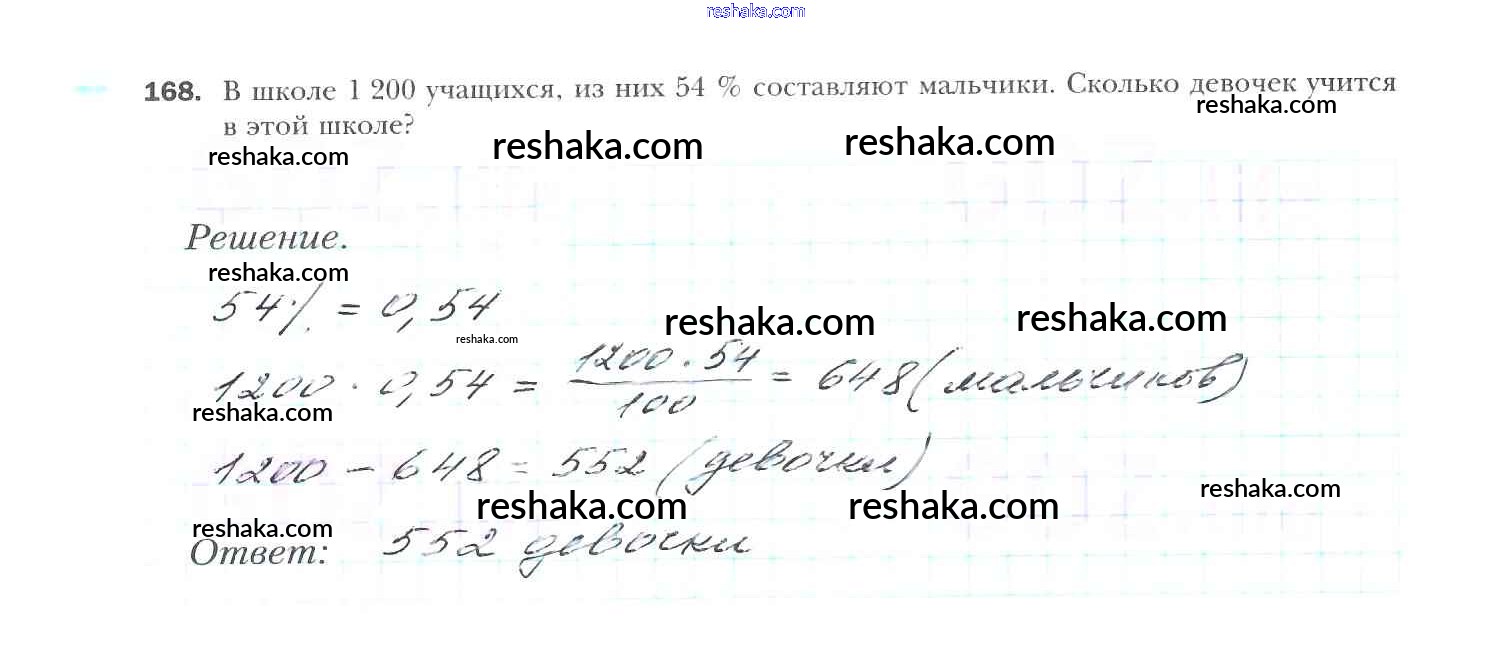 reshaka.com
168. В школе 1 200 учащихся, из них 54 % составляют мальчики. Сколько девочек учится
reshaka.com
в этой школе?
reshaka.com reshaka.com reshaka.com
Решение.
reshaka.com
54% = 0,54
reshaka.com reshaka.com
reshaka.com
1200 · 0,54 = 1200 · 54 / 100 = 648 (мальчиков)
reshaka.com
1200 − 648 = 552 (девочки)
reshaka.com reshaka.com reshaka.com
reshaka.com
Ответ: 552 девочки